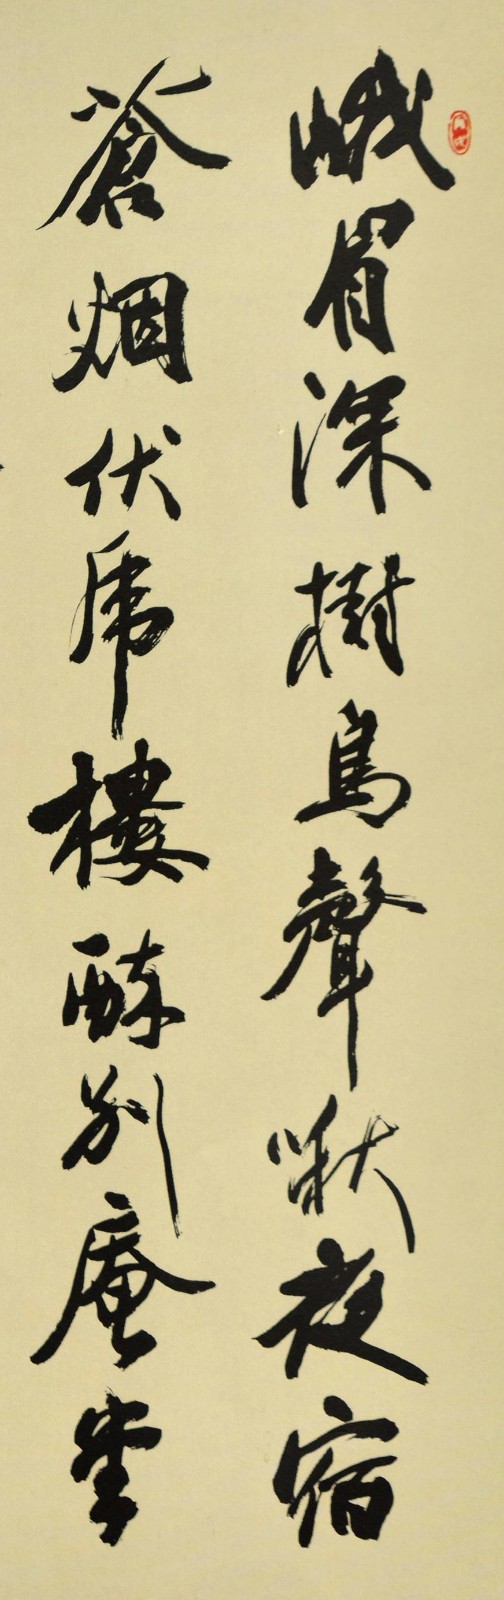 峨眉深樹鳥聲啾夜宿
蒼烟伏虎樓醉別庵堂